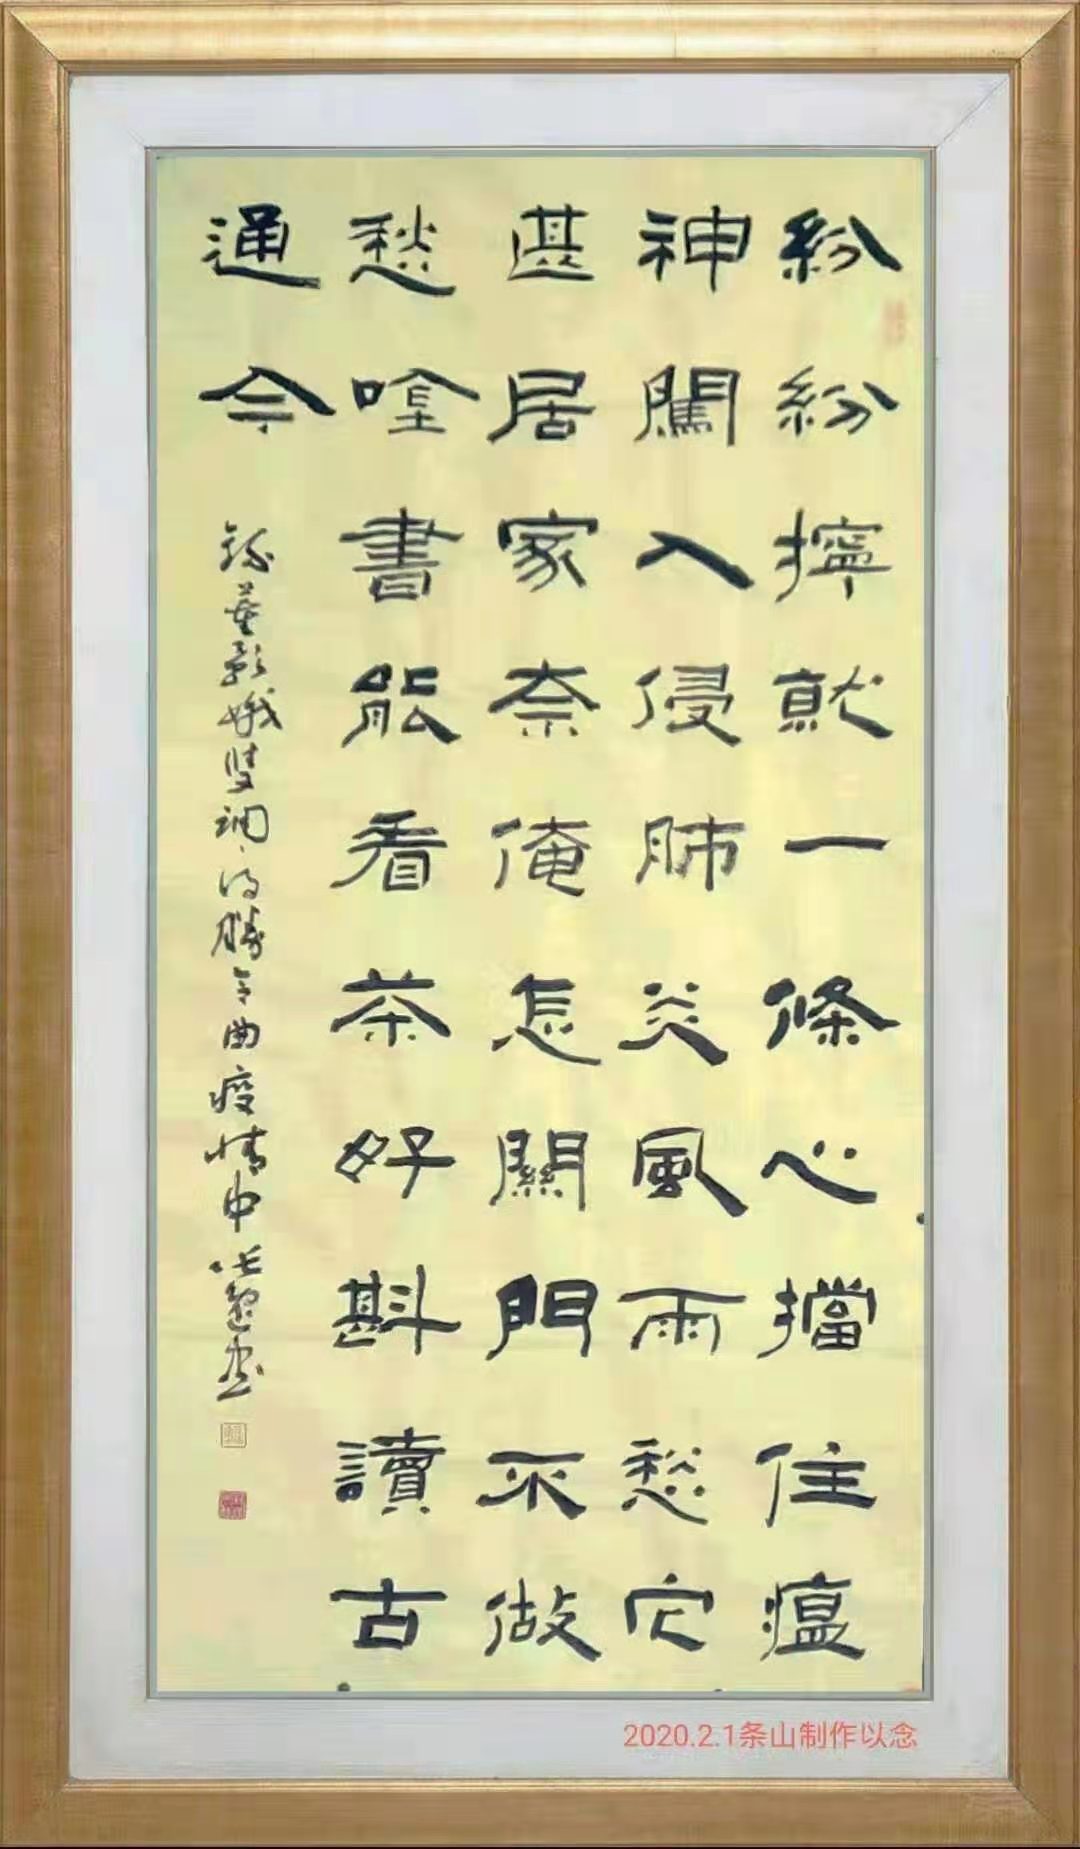 紛紛擰就一條心擋住瘟
神闖入侵肺炎風雨愁它
甚居家奈俺怎關門不做
愁書能看茶好斟讀古
通今
錄董娥雙調得勝令曲疫情中
2020.2.1条山制作以念